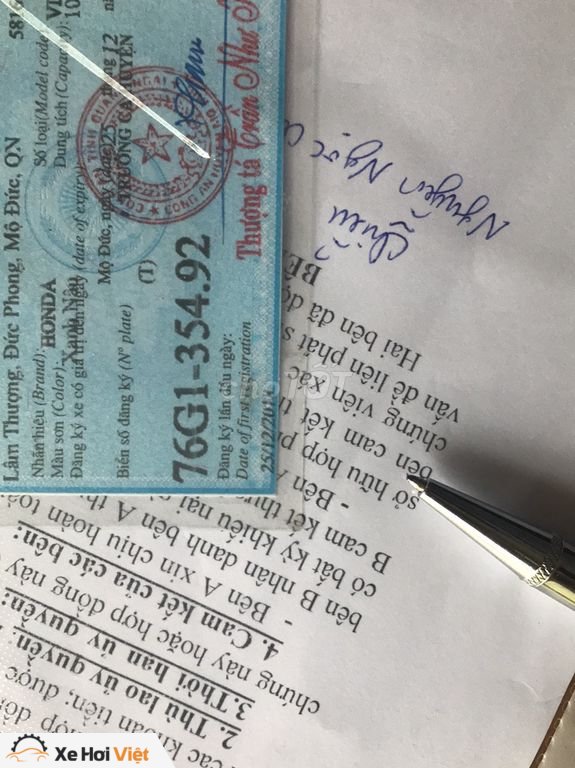 Lâm Thượng, Đức Phong, Mộ Đức, QN
Nhãn hiệu (Brand): HONDA
Số loại (Model code):
Màu sơn (Color): Xanh Nâu
Dung tích (Capacity):
Đăng ký xe có giá trị đến ngày (date of expiry)
Mộ Đức, ngày (date) 25 tháng 12
TRƯỞNG CA HUYỆN
Biển số đăng ký (N° plate) (T)
76G1-354.92
Đăng ký lần đầu ngày:
Date of first registration
25/12/
Thượng tá Trần Như
Nguyễn Ngọc
Chiểu
BÊ
Hai bên đã đọ
vấn đề liên phát s
chứng viên xác
bên cam kết t
sở hữu hợp p
- Bên A
B cam kết thực
có bất kỳ khiếu nại
bên B nhân danh bên A th
- Bên A xin chịu hoàn toà
4. Cam kết của các bên:
chứng này hoặc hợp đồng này
3.Thời hạn ủy quyền:
2. Thù lao ủy quyền:
các khoản tiền; được
hợp đồ
Xe Hơi Việt